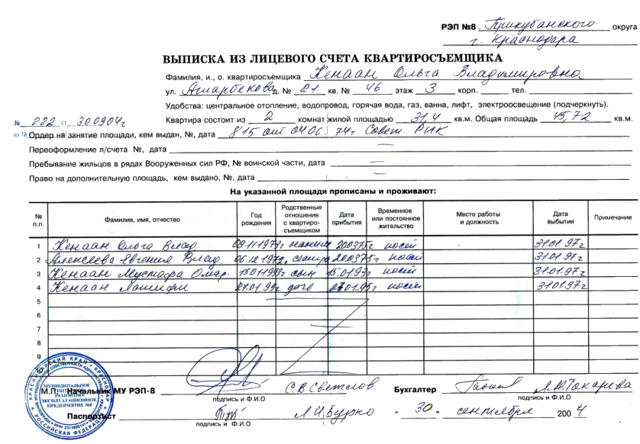 РЭП №8 Прикубанского округа
г. Краснодара
ВЫПИСКА ИЗ ЛИЦЕВОГО СЧЕТА КВАРТИРОСЪЕМЩИКА
Фамилия, и., о. квартиросъемщика Кенаан Ольга Владимировна
ул. Атарбекова д. № 21 кв. № 46 этаж 3 корп. тел.
Удобства: центральное отопление, водопровод, горячая вода, газ, ванна, лифт, электроосвещение (подчеркнуть).
Квартира состоит из 2 комнат жилой площадью 31,4 кв.м. Общая площадь 45,72 кв.м.
№ 222 от 300904г
Ордер на занятие площади, кем выдан, №, дата 815 от 04.06.74г Совет. РИК
Переоформление л/счета №, дата —
Пребывание жильцов в рядах Вооруженных сил РФ, № воинской части, дата —
Право на дополнительную площадь, кем выдано, №, дата —
На указанной площади прописаны и проживают:
№ п.п. Фамилия, имя, отчество Год рождения Родственные отношения с квартиросъемщиком Дата прибытия Временное или постоянное жительство Место работы и должность Дата выбытия Примечание
1 Кенаан Ольга Влад 200375г пост 31.01.97г
2 Алексеева Евгения Влад. сестра 200375г пост 31.01.97г
3 Кенаан Мустафа Омар. сын пост 31.01.97г
4 Кенаан доч пост 31.01.97г
5
6
7
8
9
М.П. Начальник МУ РЭП-8 С.В.Светлов Бухгалтер Л.И.Токарева
подпись и Ф.И.О подпись и Ф.И.О
Паспортист Л.И.Бурко - 30 - сентября 2004
подпись и Ф.И.О